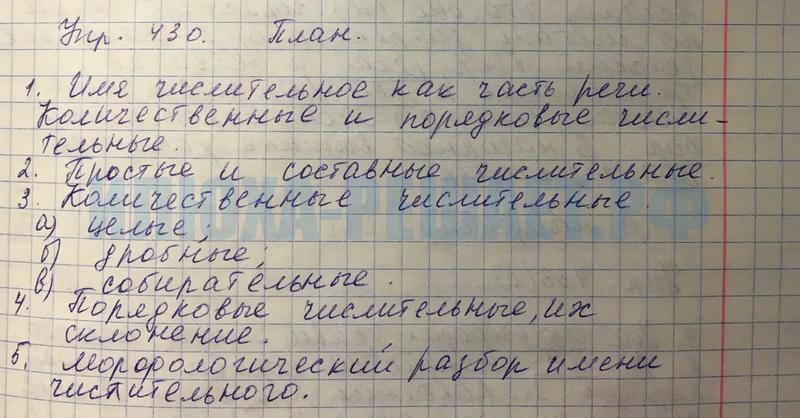 Упр. 430. План.
1. Имя числительное как часть речи.
Количественные и порядковые числи-
тельные.
2. Простые и составные числительные.
3. Количественные числительные.
а) целые;
б) дробные;
в) собирательные.
4. Порядковые числительные, их
склонение.
5. Морфологический разбор имени
числительного.